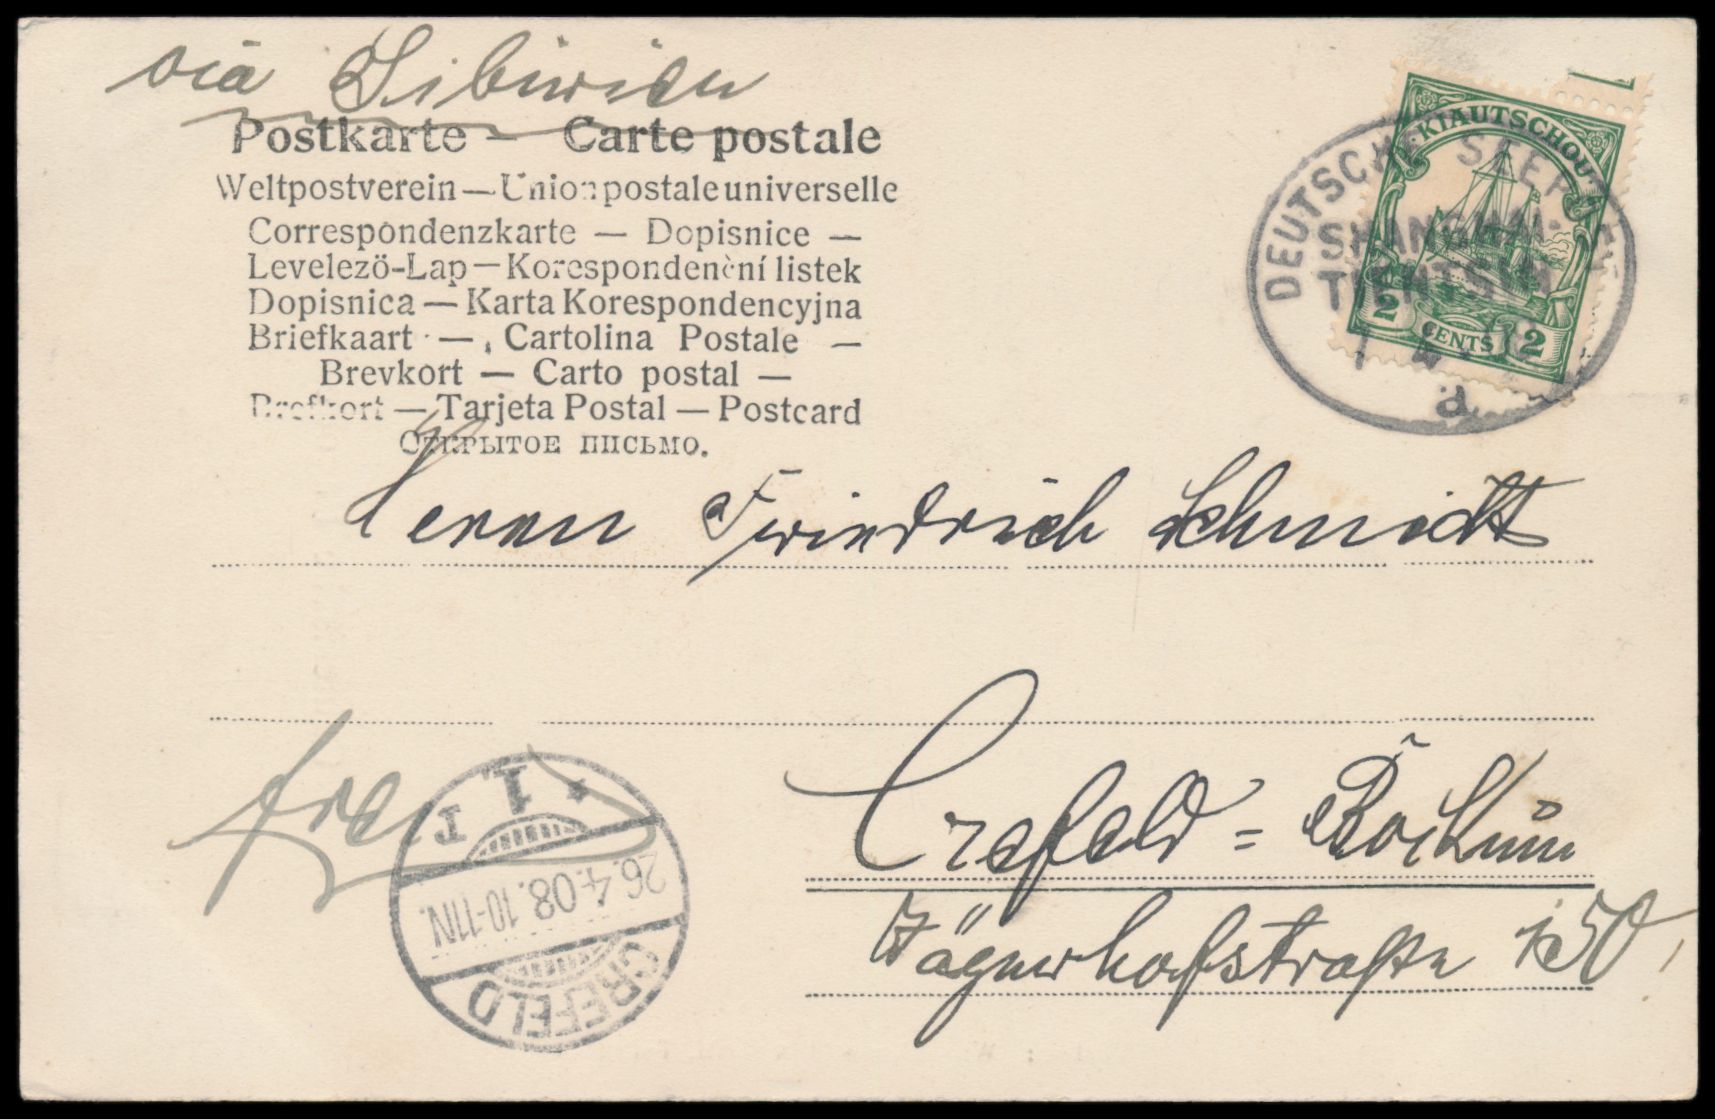 via Sibirien
Postkarte — Carte postale
Weltpostverein — Union postale universelle
Correspondenzkarte — Dopisnice —
Levelező-Lap — Korespondenční listek
Dopisnica — Karta Korespondencyjna
Briefkaart — Cartolina Postale —
Brevkort — Carto postal —
Brefkort — Tarjeta Postal — Postcard
Открытое письмо.
KIAUTSCHOU
2 CENTS 2
DEUTSCHE SEEPOST
SHANGHAI-
TIENTSIN
a
Herrn Friedrich Schmidt
Crefeld = Bockum
Jägerhofstraße 150,
* 1 r
26.4.08.10-11N.
CREFELD